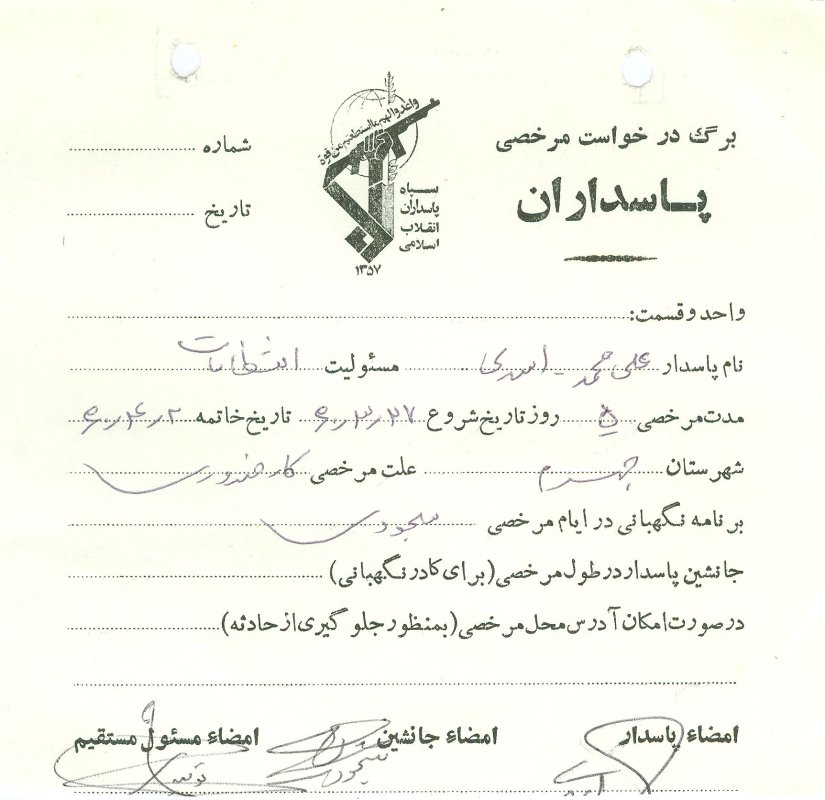 برگ در خواست مرخصی
پاسداران
واعدوا لهم ما استطعتم من قوة
سپاه
پاسداران
انقلاب
اسلامی
۱۳۵۷
شماره
تاریخ
واحد و قسمت:
نام پاسدار علی محمد - اسدی مسئولیت انتظامات
مدت مرخصی ۵ روز تاریخ شروع ۶۰٫۳٫۲۷ تاریخ خاتمه ۶۰٫۴٫۲
شهرستان جهرم علت مرخصی کار ضروری
برنامه نگهبانی در ایام مرخصی سجودی
جانشین پاسدار در طول مرخصی (برای کادر نگهبانی)
در صورت امکان آدرس محل مرخصی (بمنظور جلوگیری از حادثه)
امضاء پاسدار امضاء جانشین امضاء مسئول مستقیم